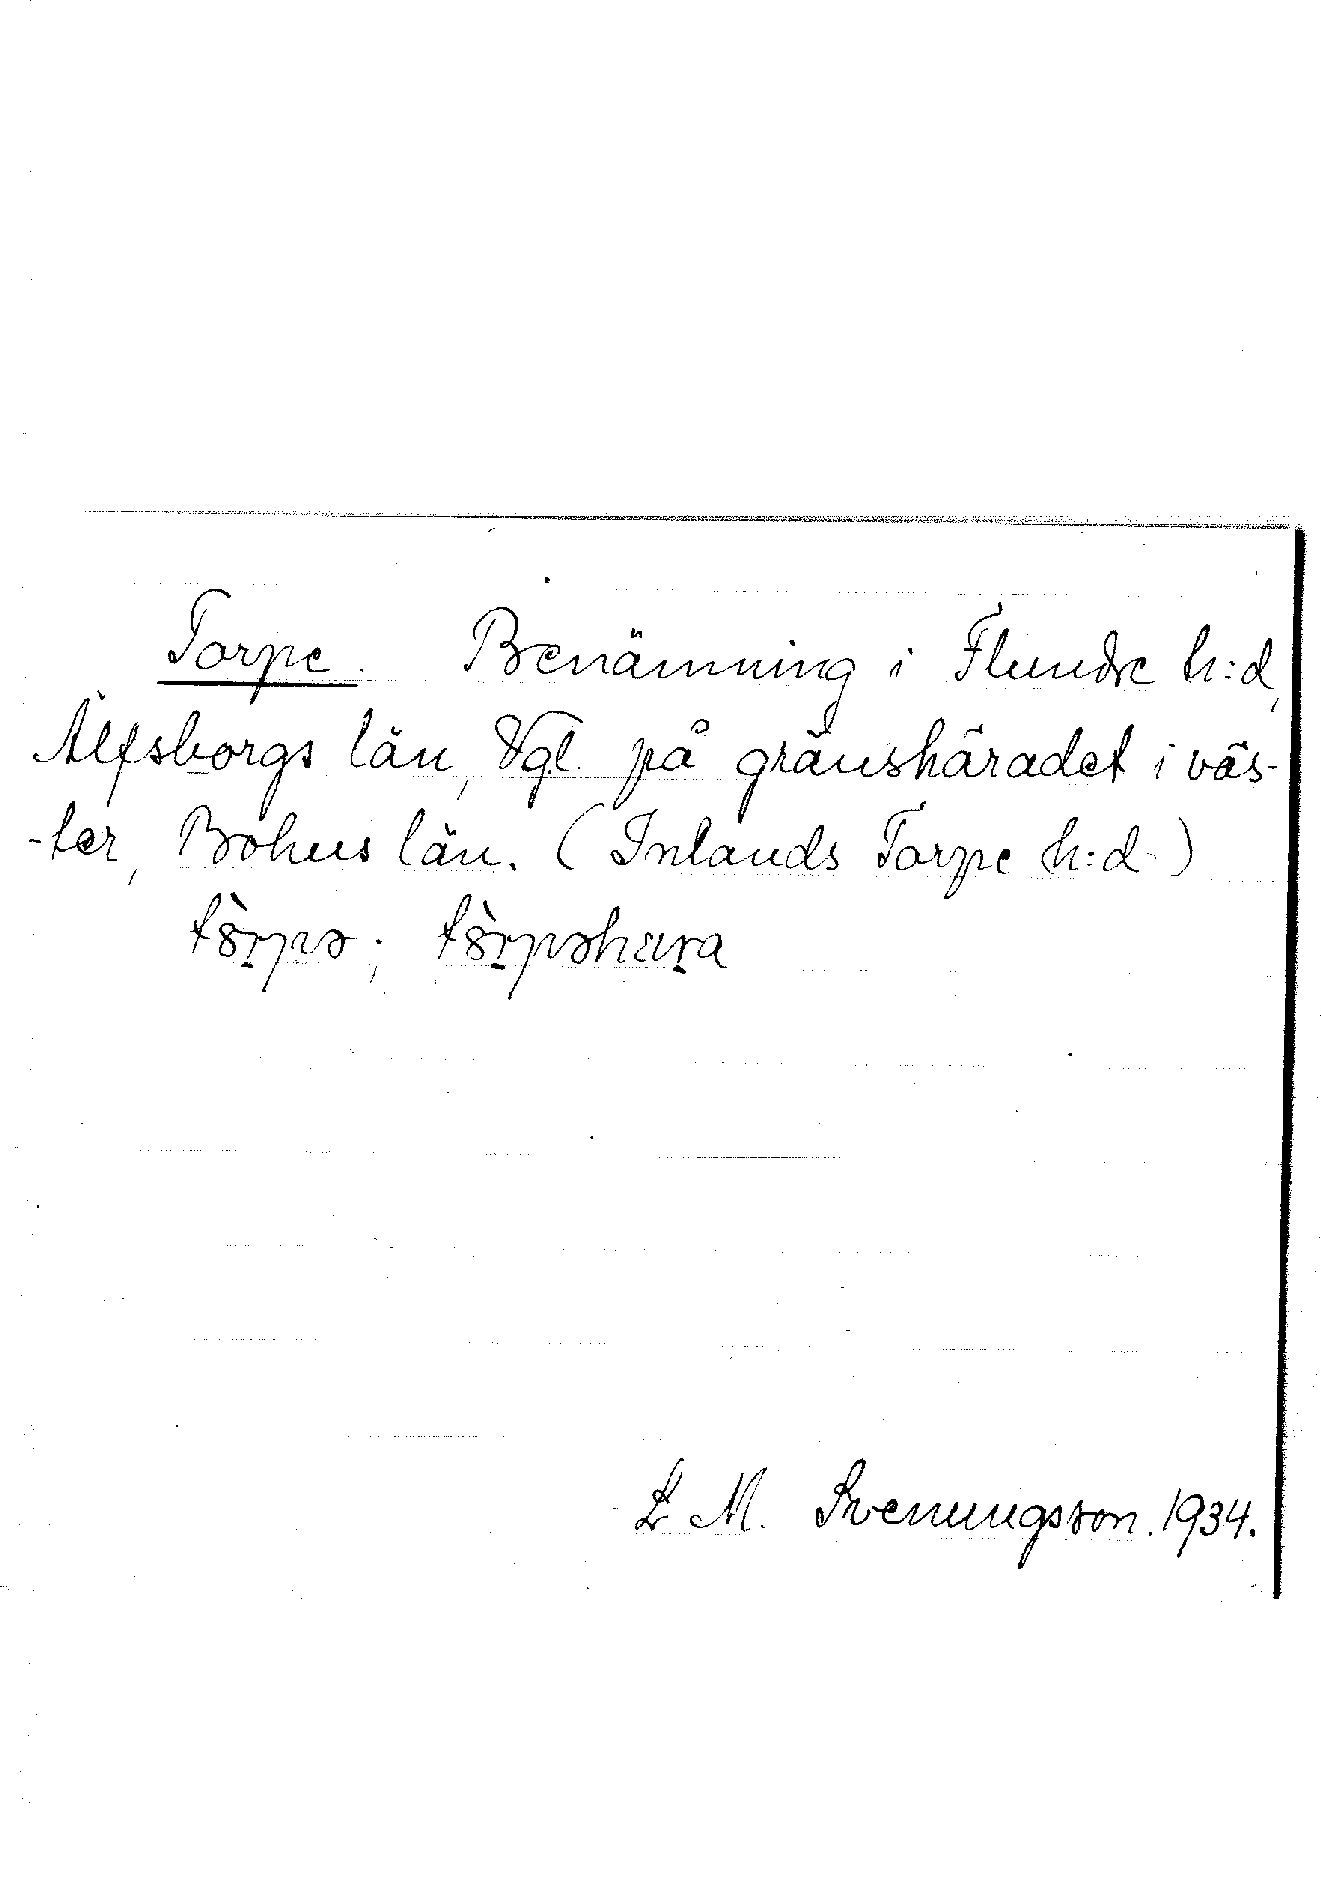 Torpe. Benämning i Flundre h:d,
Älfsborgs län, Vgl. på gränshäradet i väs-
-ter, Bohus län. (Inlands Torpe h:d)
L M. Svenungsson. 1934.